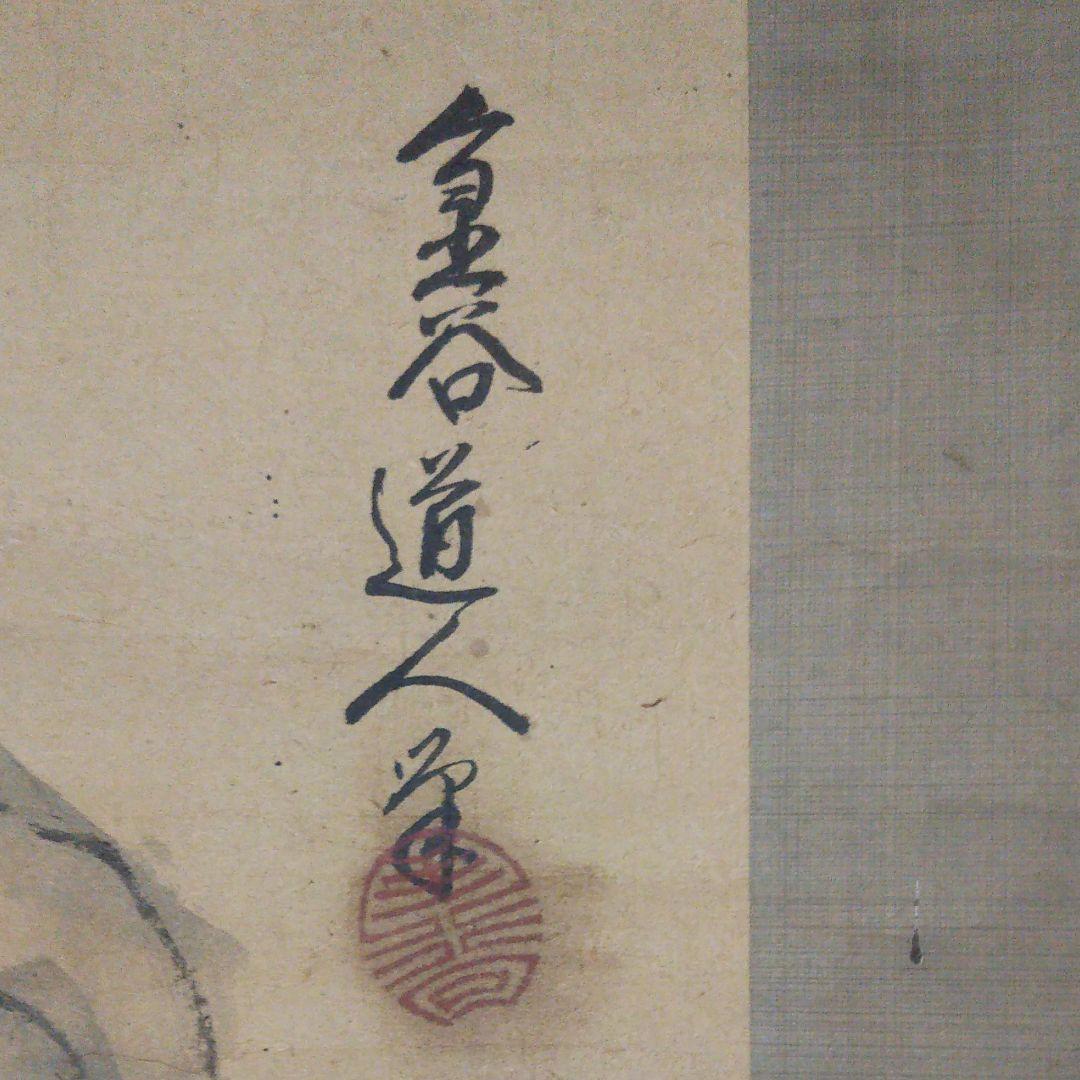 金谷道人筆